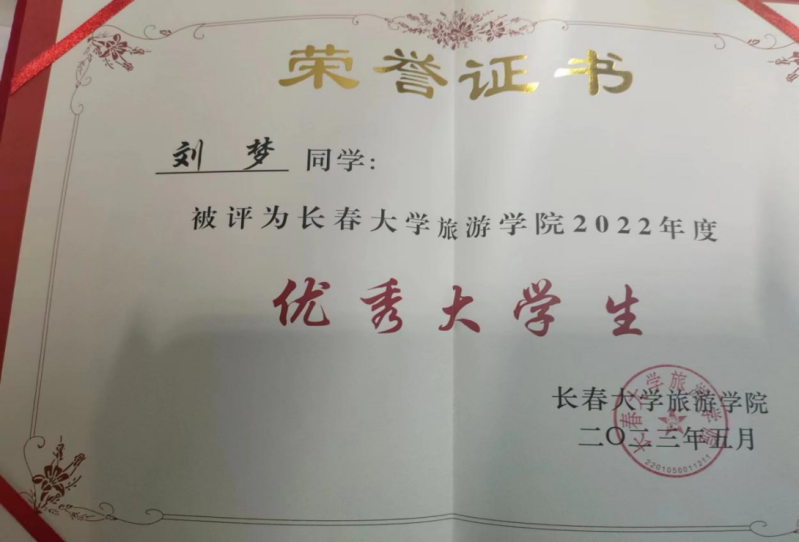 荣誉证书
刘梦 同学:
被评为长春大学旅游学院2022年度
优秀大学生
长春大学旅游学院
二〇二三年五月
长春大学旅游学院
2201050011211